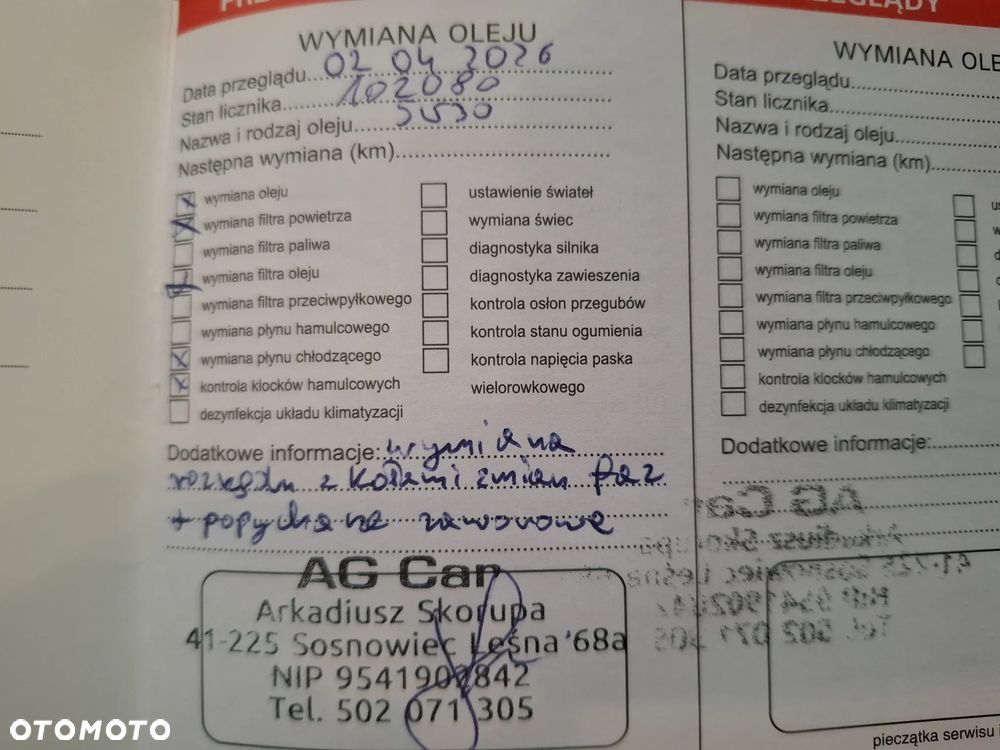 WYMIANA OLEJU
Data przeglądu...02 04 2026
Stan licznika...102080
Nazwa i rodzaj oleju...5W30
Następna wymiana (km)...
wymiana oleju
wymiana filtra powietrza
wymiana filtra paliwa
wymiana filtra oleju
wymiana filtra przeciwpyłkowego
wymiana płynu hamulcowego
wymiana płynu chłodzącego
kontrola klocków hamulcowych
dezynfekcja układu klimatyzacji
ustawienie świateł
wymiana świec
diagnostyka silnika
diagnostyka zawieszenia
kontrola osłon przegubów
kontrola stanu ogumienia
kontrola napięcia paska
wielorowkowego
Dodatkowe informacje: wymiana
rozrządu z kołami zmian faz
+ popychacze zaworowe
AG Car
Arkadiusz Skorupa
41-225 Sosnowiec Leśna 68a
NIP 9541902842
Tel. 502 071 305
OTOMOTO
WYMIANA OLE
Data przeglądu...
Stan licznika...
Nazwa i rodzaj oleju...
Następna wymiana (km)...
wymiana oleju
wymiana filtra powietrza
wymiana filtra paliwa
wymiana filtra oleju
wymiana filtra przeciwpyłkowego
wymiana płynu hamulcowego
wymiana płynu chłodzącego
kontrola klocków hamulcowych
dezynfekcja układu klimatyzacji
Dodatkowe informacje:
AG Car
pieczątka serwisu i